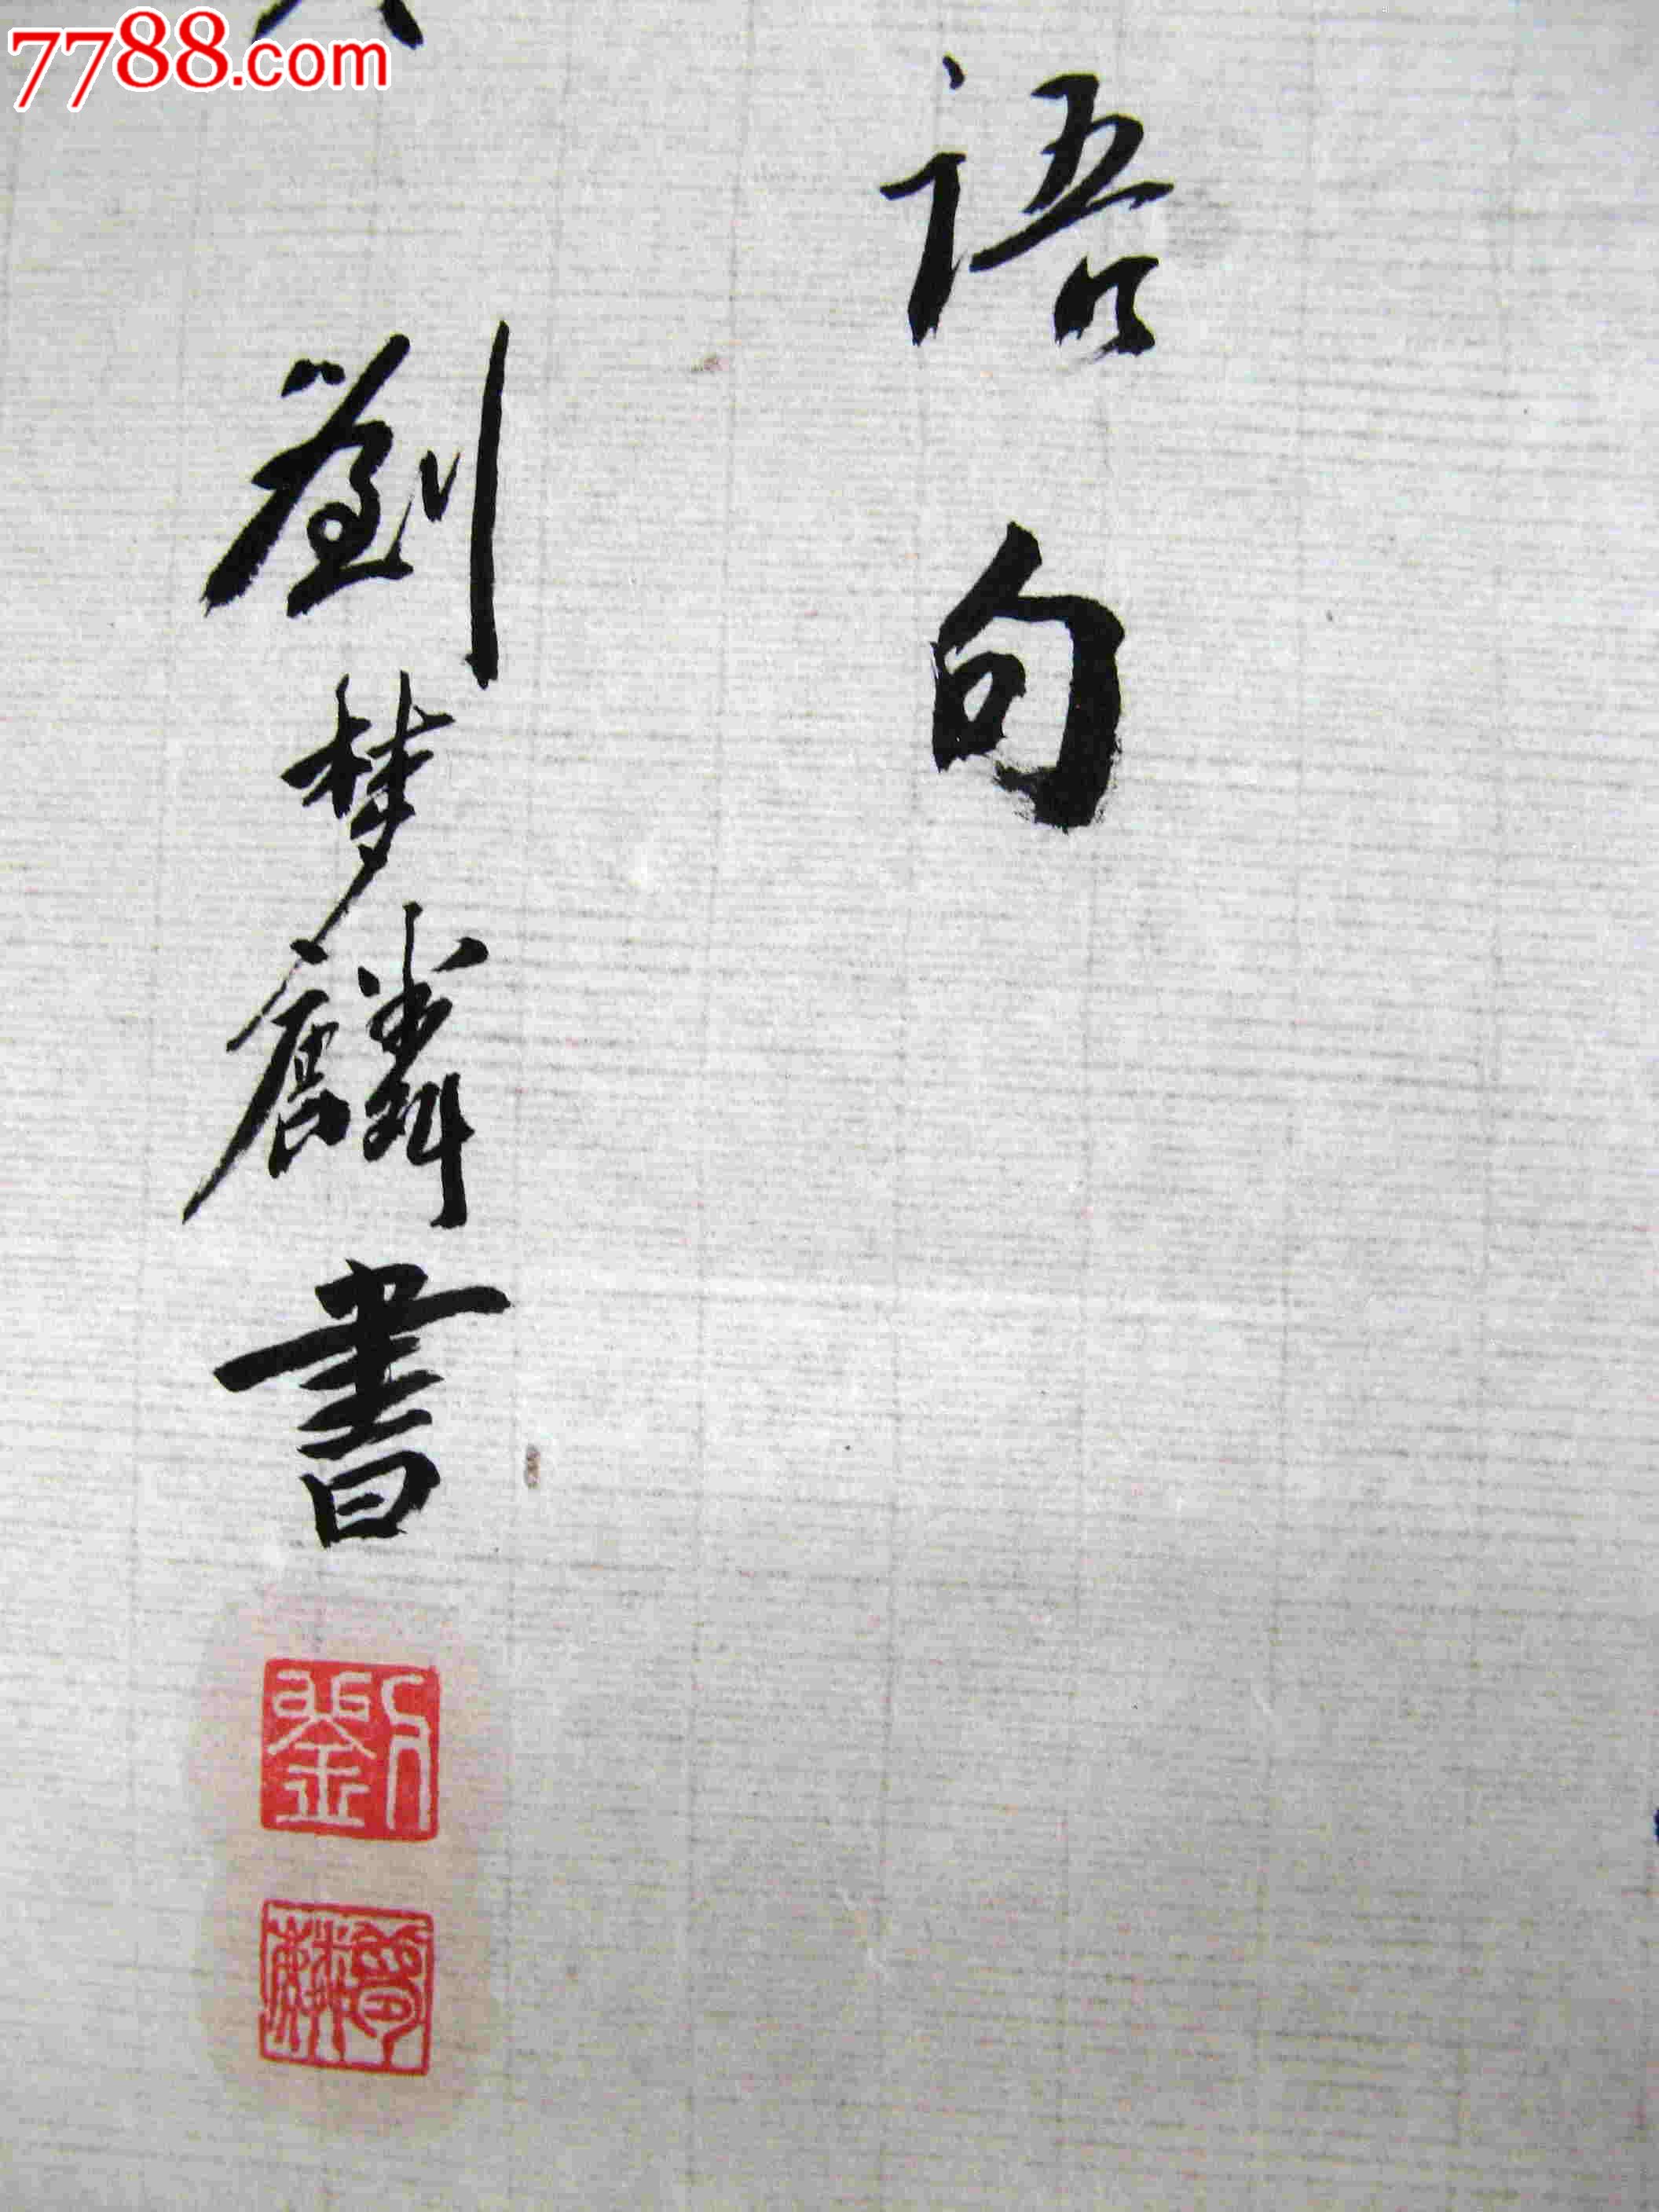 7788.com
语句
劉梦麟書
劉
夢麟